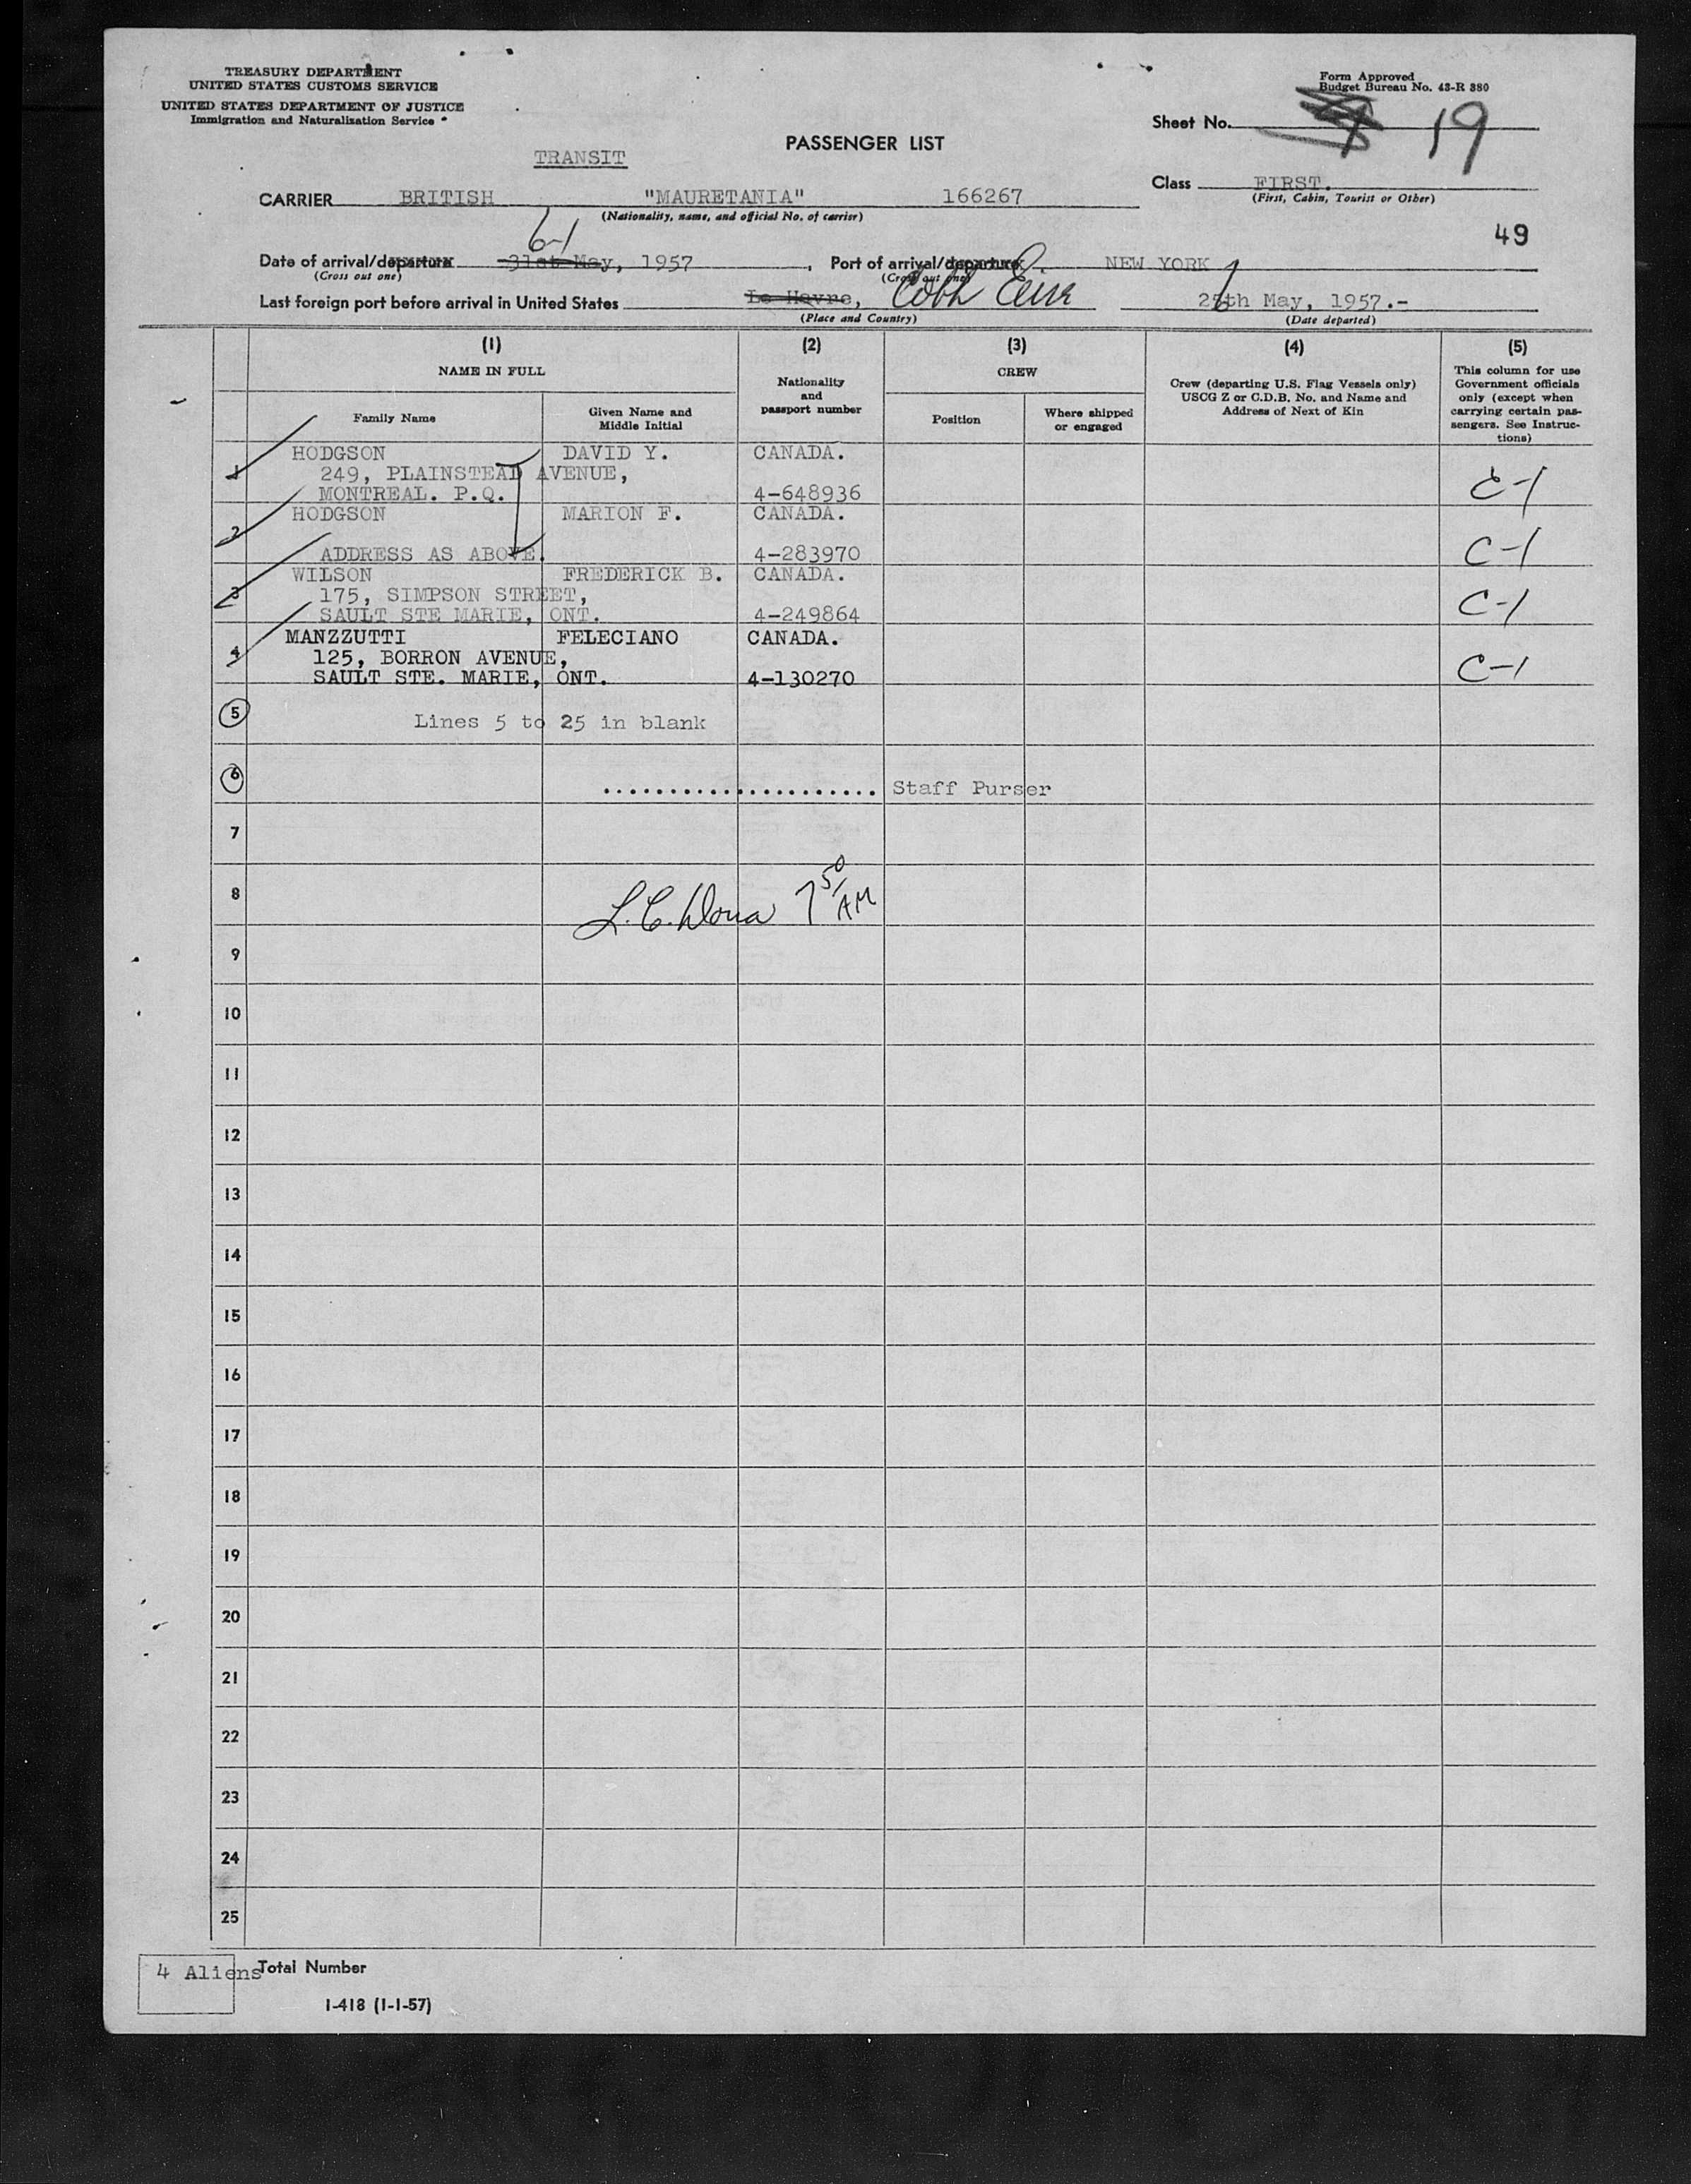 TREASURY DEPARTMENT
UNITED STATES CUSTOMS SERVICE
UNITED STATES DEPARTMENT OF JUSTICE
Immigration and Naturalization Service
Form Approved
Budget Bureau No. 43-R 380
Sheet No. 19
PASSENGER LIST
TRANSIT
Class FIRST.
(First, Cabin, Tourist or Other)
CARRIER BRITISH "MAURETANIA" 166267
(Nationality, name, and official No. of carrier)
49
6-1
Date of arrival/departure 31st May, 1957, Port of arrival/departure NEW YORK
(Cross out one) (Cross out one)
Last foreign port before arrival in United States Le Havre, Cobh Eire 26th May, 1957.-
(Place and Country) (Date departed)
(1) (2) (3) (4) (5)
NAME IN FULL
Family Name
Given Name and
Middle Initial
Nationality
and
passport number
CREW
Position
Where shipped
or engaged
Crew (departing U.S. Flag Vessels only)
USCG Z or C.D.B. No. and Name and
Address of Next of Kin
This column for use
Government officials
only (except when
carrying certain pas-
sengers. See Instruc-
tions)
1 HODGSON DAVID Y. CANADA.
249, PLAINSTEAD AVENUE,
MONTREAL. P.Q. 4-648936 C-1
2 HODGSON MARION F. CANADA.
ADDRESS AS ABOVE. 4-283970 C-1
3 WILSON FREDERICK B. CANADA.
175, SIMPSON STREET,
SAULT STE MARIE, ONT. 4-249864 C-1
4 MANZZUTTI FELECIANO CANADA.
125, BORRON AVENUE,
SAULT STE. MARIE, ONT. 4-130270 C-1
5 Lines 5 to 25 in blank
6 ..................... Staff Purser
7
8 L.C. 7 50/AM
9
10
11
12
13
14
15
16
17
18
19
20
21
22
23
24
25
4 Aliens Total Number
I-418 (1-1-57)